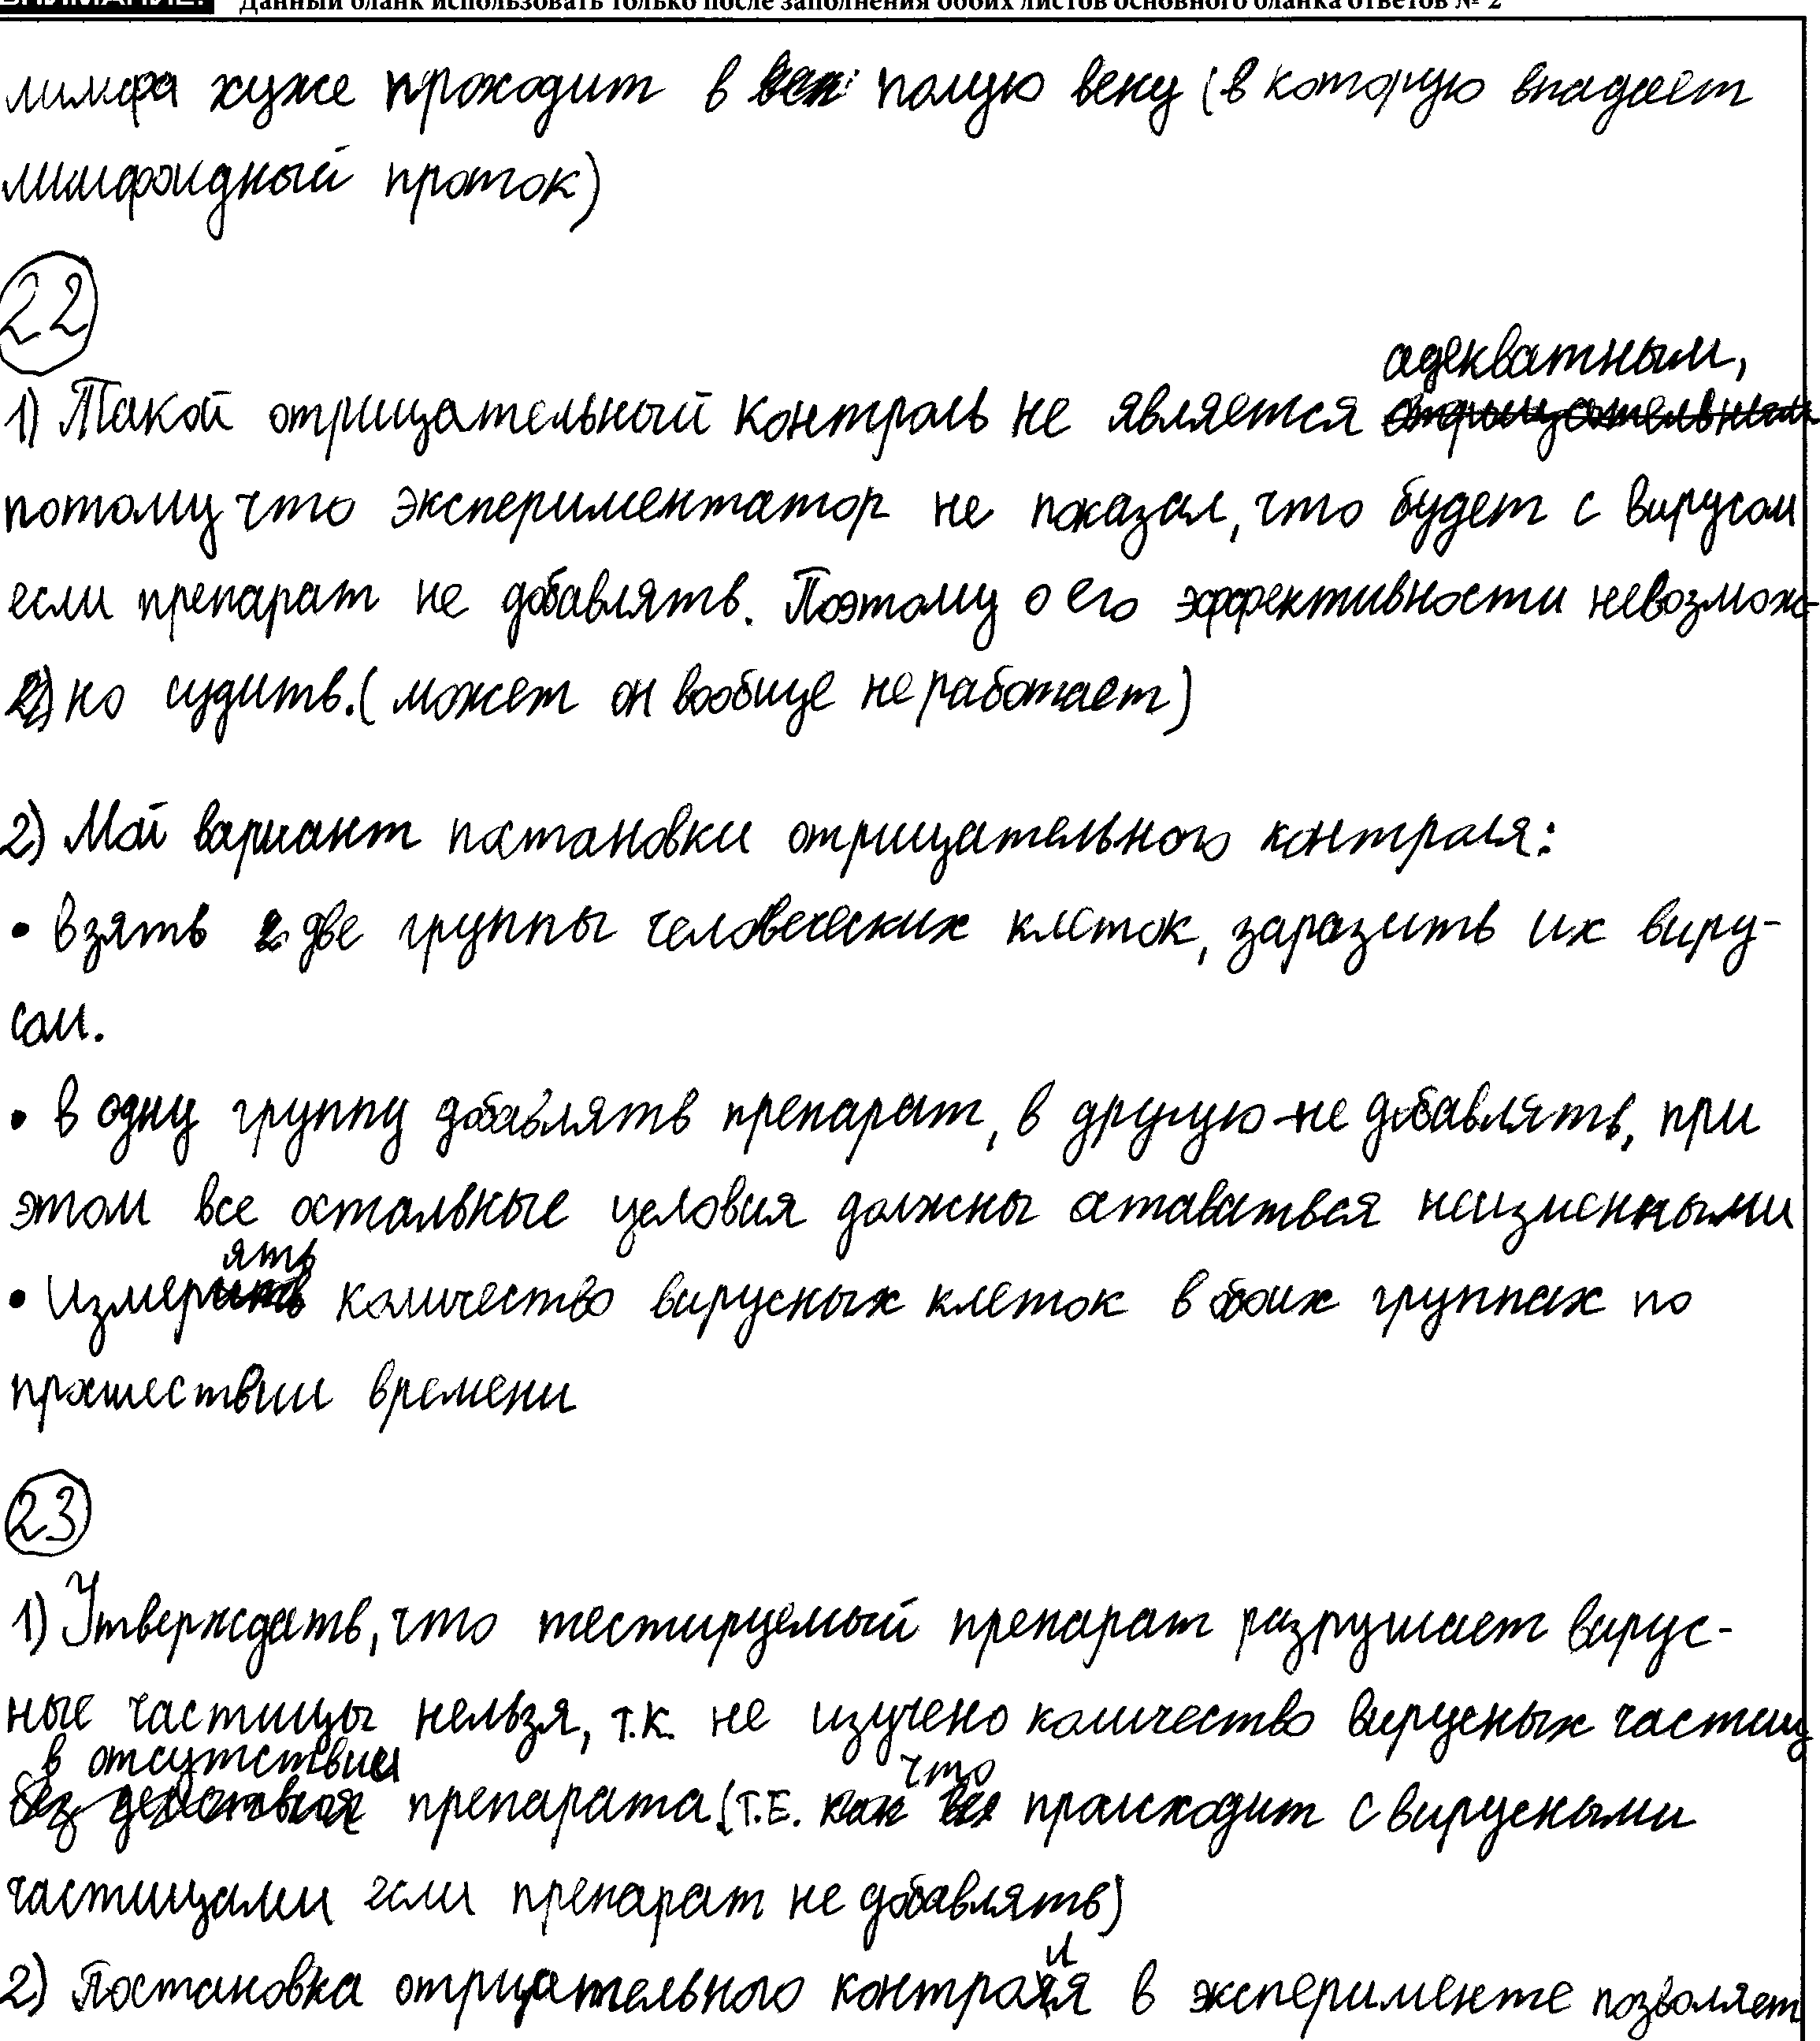 ВНИМАНИЕ! Данный бланк использовать только после заполнения обоих листов основного бланка ответов № 2
лимфа хуже проходит в вен полую вену (в которую впадает
лимфоидный проток)
22
адекватным,
1) Такой отрицательный контроль не является отрицательным
потому что экспериментатор не показал, что будет с вирусом
если препарат не добавлять. Поэтому о его эффективности невозмож-
2) но судить. (может он вообще не работает)
2) Мой вариант постановки отрицательного контроля:
• взять 2 две группы человеческих клеток, заразить их виру-
сом.
• в одну группу добавлять препарат, в другую - не добавлять, при
этом все остальные условия должны оставаться неизменными
ять
• Измерить количество вирусных клеток в обоих группах по
прошествии времени
23
1) Утверждать, что тестируемый препарат разрушает вирус-
ные частицы нельзя, т.к. не изучено количество вирусных частиц
в отсутствии что
без действия препарата. (т.е. как все происходит с вирусными
частицами если препарат не добавлять)
2) Постановка отрицательного контроля в эксперименте позволяет